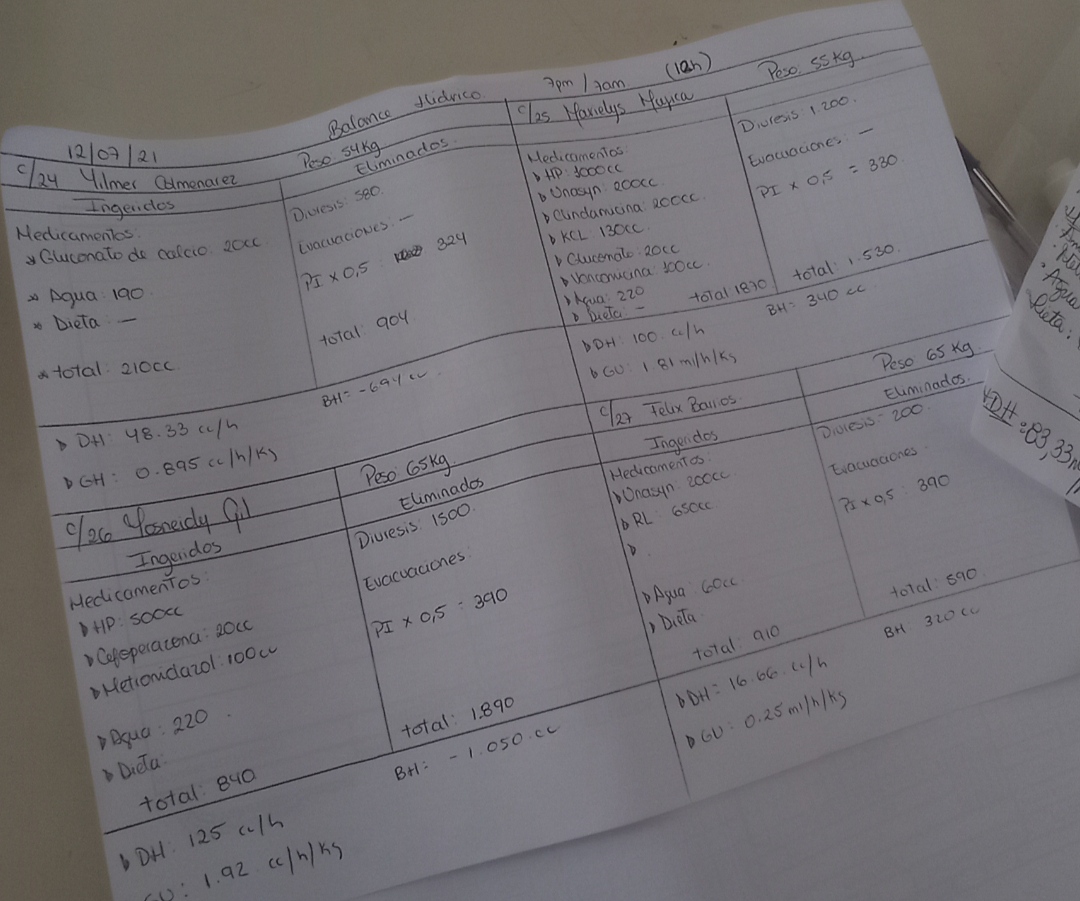 12/07/21 Balance Hidrico 7pm / 7am (12h)
C/24 Yilmer Colmenarez Peso 54Kg
Ingeridos Eliminados
Medicamentos. Diuresis: 580.
Gluconato de calcio. 20cc Evacuaciones: —
Agua: 190. PI x 0,5 324
Dieta: —
total: 210cc. total: 904
BH= -694 cc
DH: 48.33 cc/h
GH: 0.895 cc/h/Kg
C/25 Marielys Mujica Peso: 55Kg
Medicamentos: Diuresis: 1.200.
HP: 1000cc Evacuaciones: —
Unasyn: 200cc. PI x 0,5 = 330
Clindamicina: 200cc.
KCL 130cc.
Gluconato: 20cc
Vanconucina: 100cc
Agua: 220
Dieta: — total 1870 total: 1.530.
BH= 340 cc
DH: 100. cc/h
GU: 1 81 ml/h/Kg
C/26 Yosneidy Gil Peso 65Kg.
Ingeridos Eliminados
Medicamentos: Diuresis: 1500.
HP: 500cc Evacuaciones:
Cefoperacena: 20cc PI x 0,5 = 390
Metionidazol: 100cc
Agua: 220.
Dieta:
total: 840 total: 1.890
BH: - 1.050.cc
DH: 125 cc/h
GU: 1.92 cc/h/Kg
C/27 Felix Barios. Peso 65 Kg.
Ingeridos Eliminados.
Medicamentos: Diuresis- 200.
Unasyn: 200cc Evacuaciones
RL: 650cc PI x 0,5: 390
Agua: 60cc
Dieta:
total: 910 total: 590.
BH 320 cc
DH= 16.66. cc/h
GU: 0.25 ml/h/Kg
Agua
Dieta:
DH= 83,33